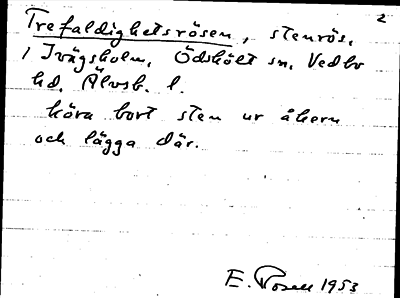 2
Trefaldighetsrösen, stenrös,
i Ivägsholm, Ödskölt sn, Vedbo
hd, Älvsb. l.
köra bort sten ur åkern
och lägga där.
E. Rosell 1953